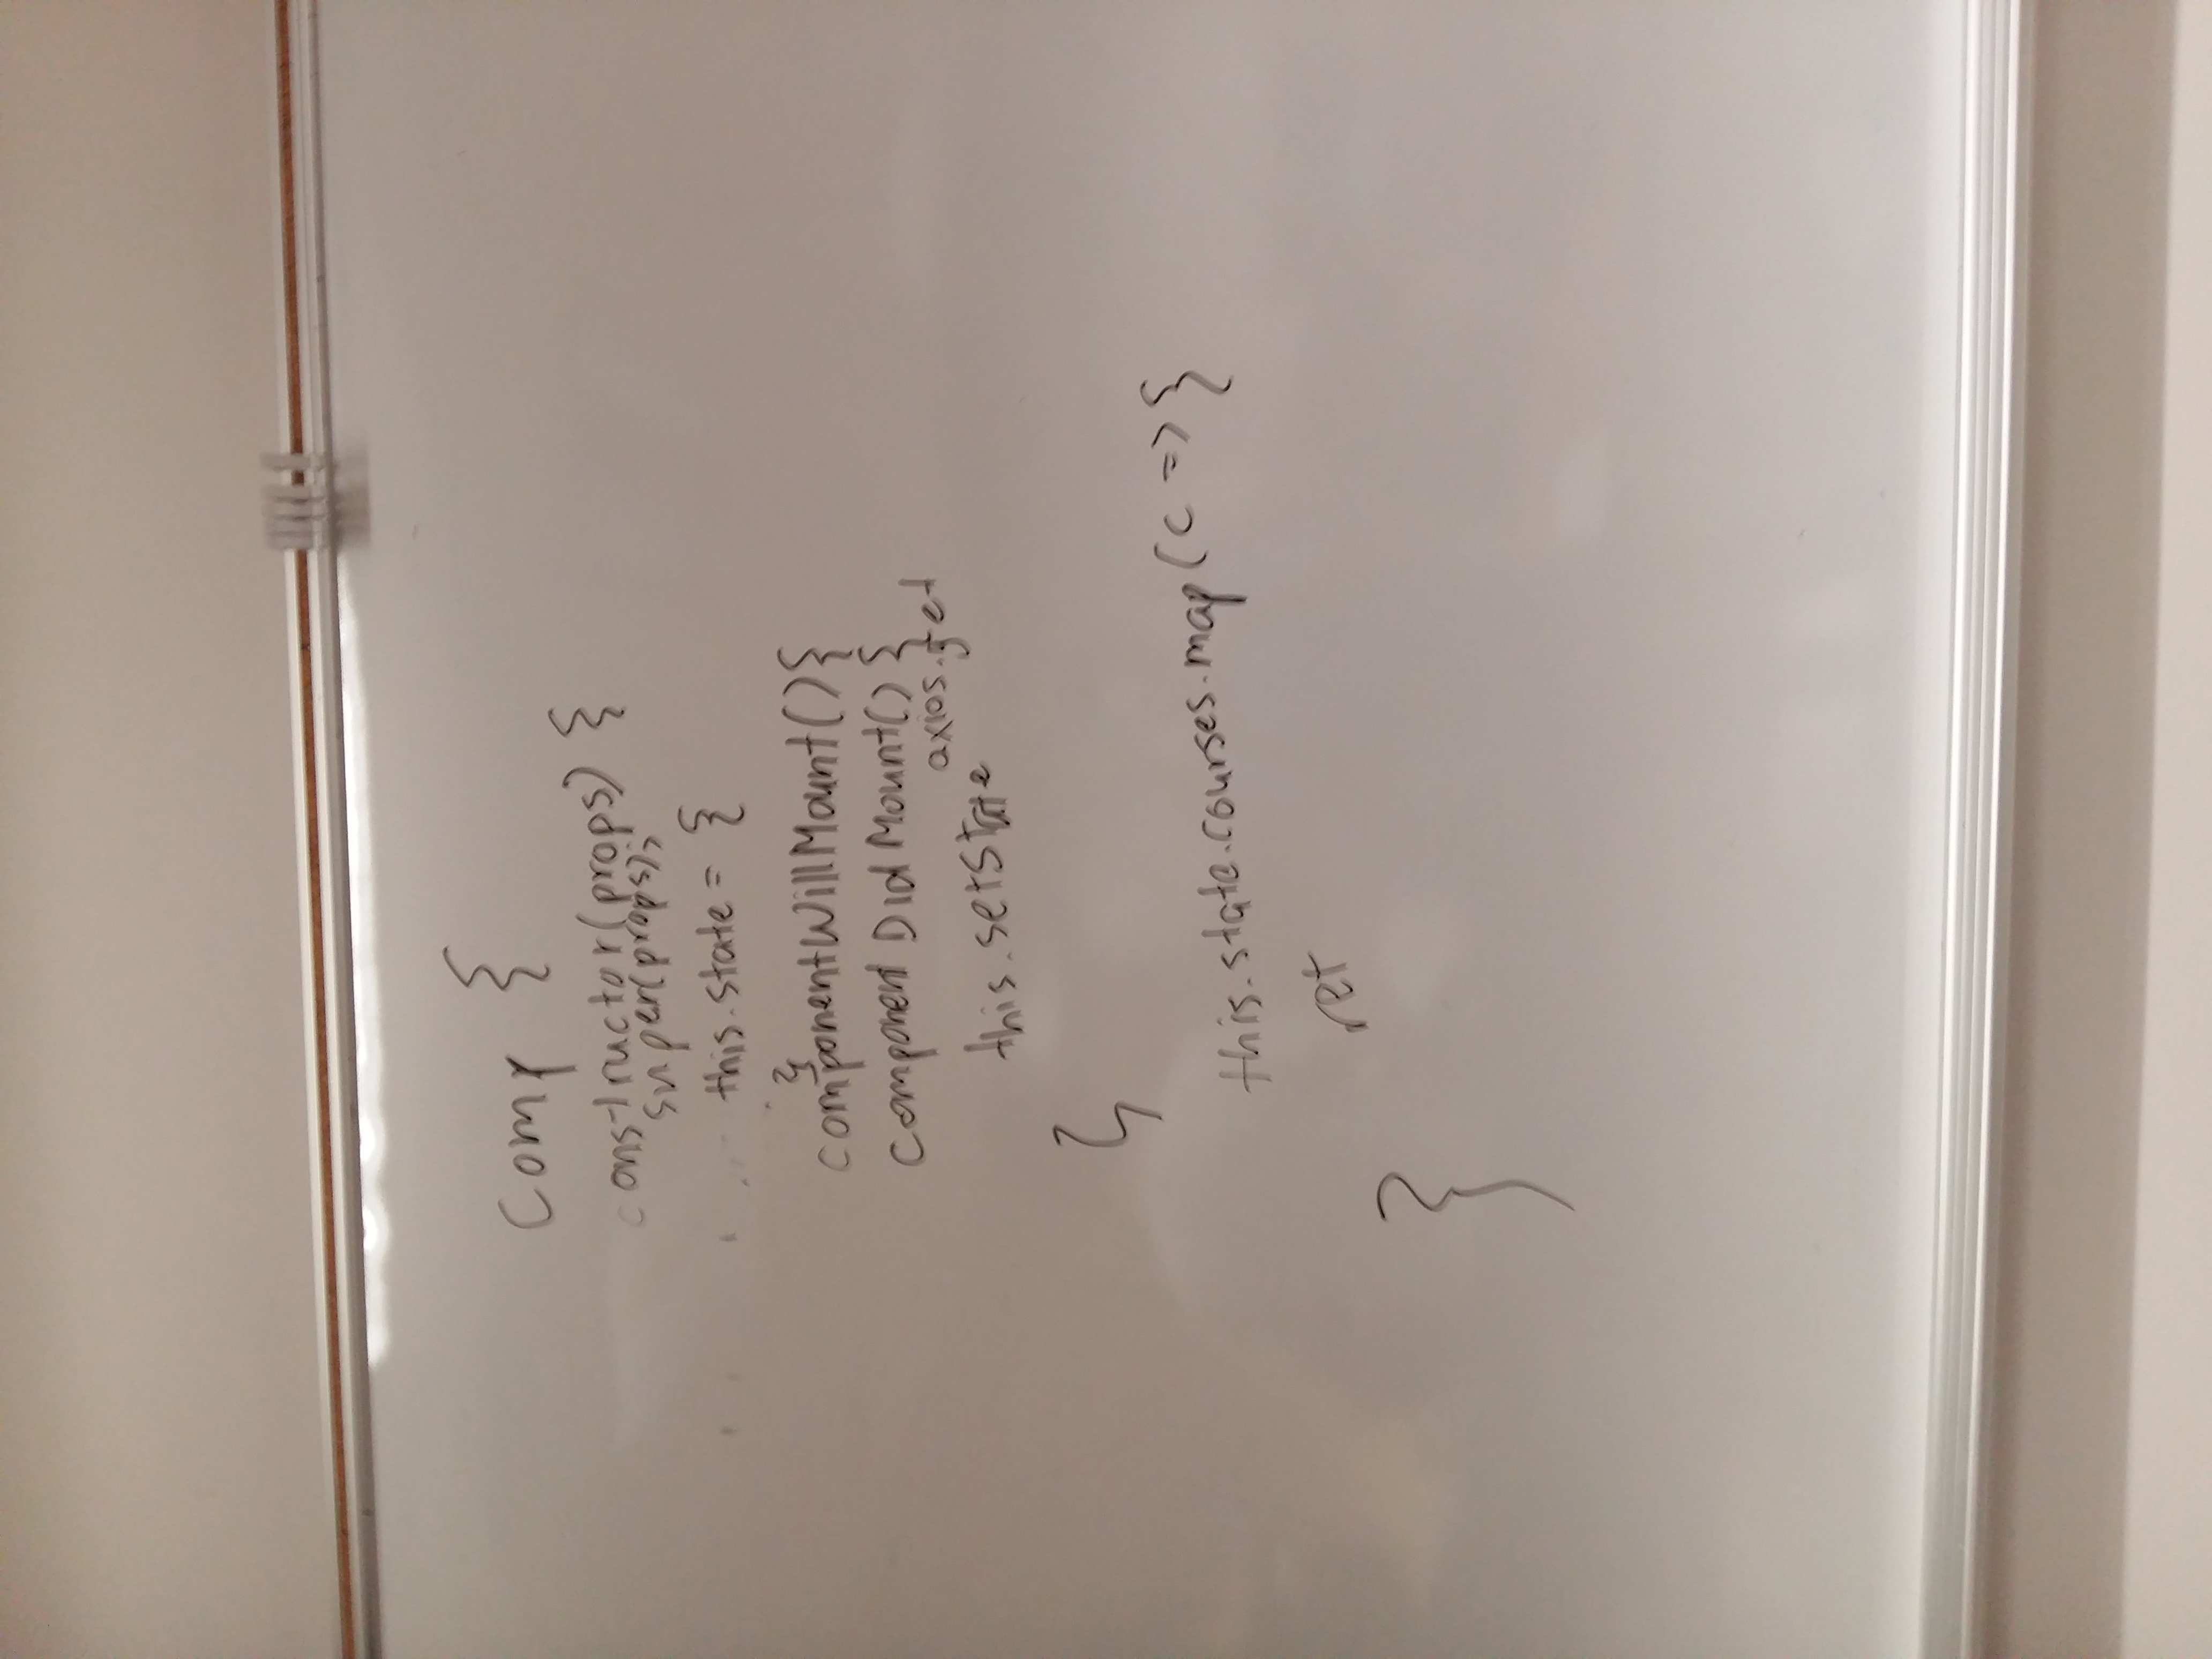 Comp {
constructor(props) {
super(props);
this.state = {
}
componentWillMount(){
Component Did Mount() {
axios.get
this.setState
}
this.state.courses.map(c => {
ret
}